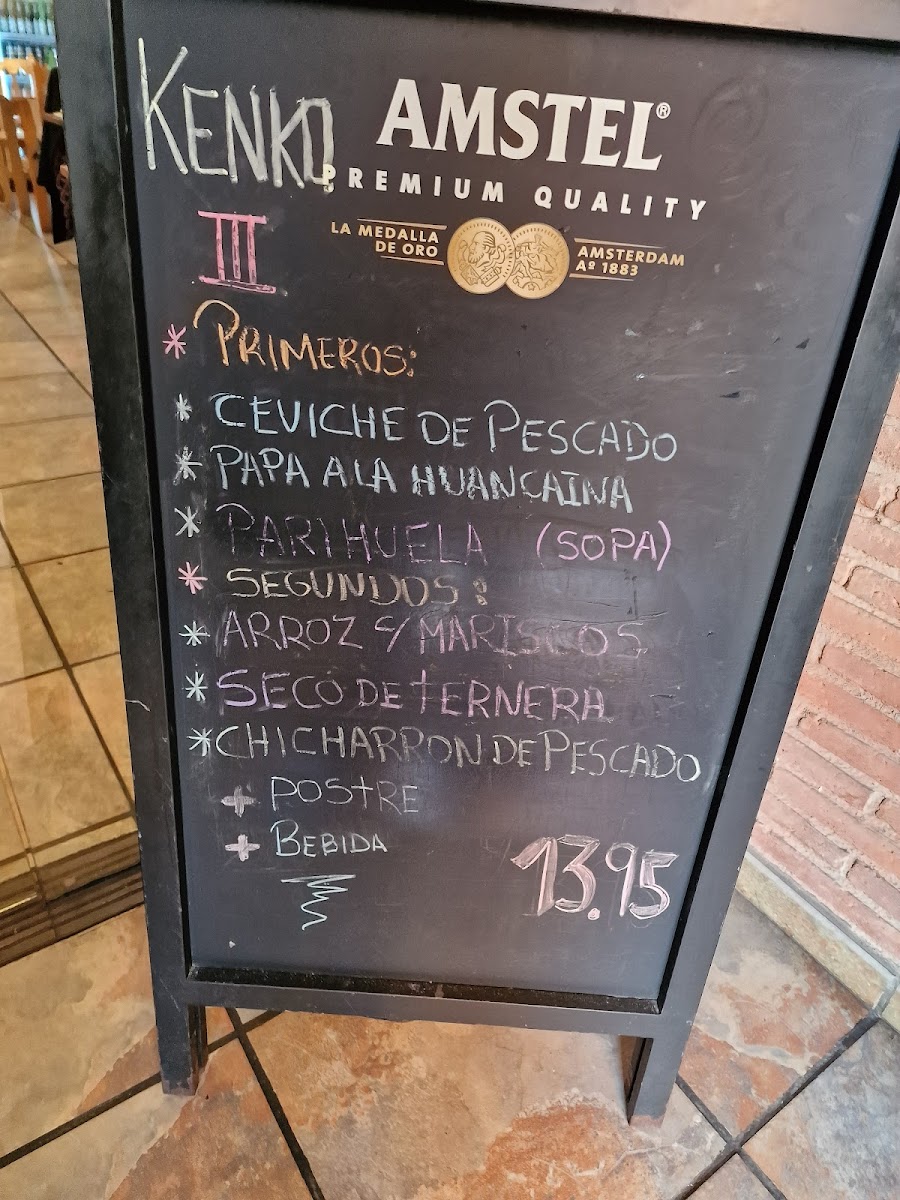 KENKO
AMSTEL®
PREMIUM QUALITY
LA MEDALLA
DE ORO
AMSTERDAM
Aº 1883
III
* PRIMEROS:
* CEVICHE DE PESCADO
* PAPA A LA HUANCAINA
* PARIHUELA (SOPA)
* SEGUNDOS:
* ARROZ C/ MARISCOS
* SECO DE TERNERA
* CHICHARRON DE PESCADO
+ POSTRE
+ BEBIDA
13.95